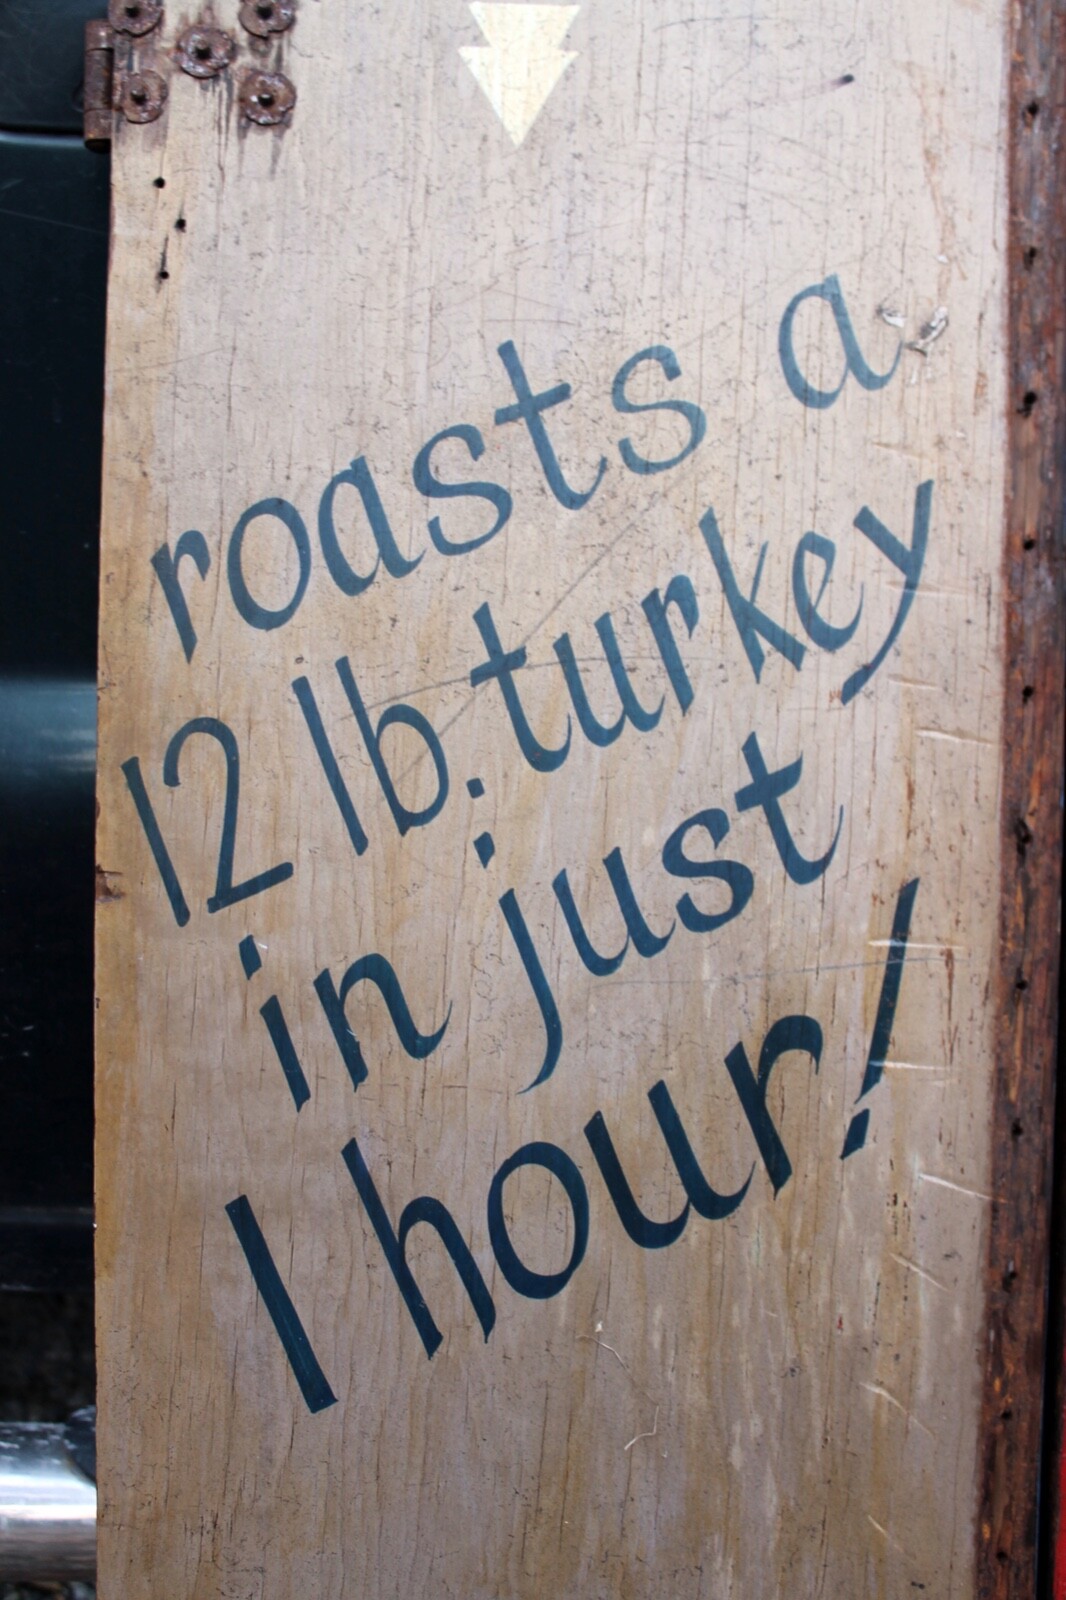 roasts a
12 lb. turkey
in just
1 hour!